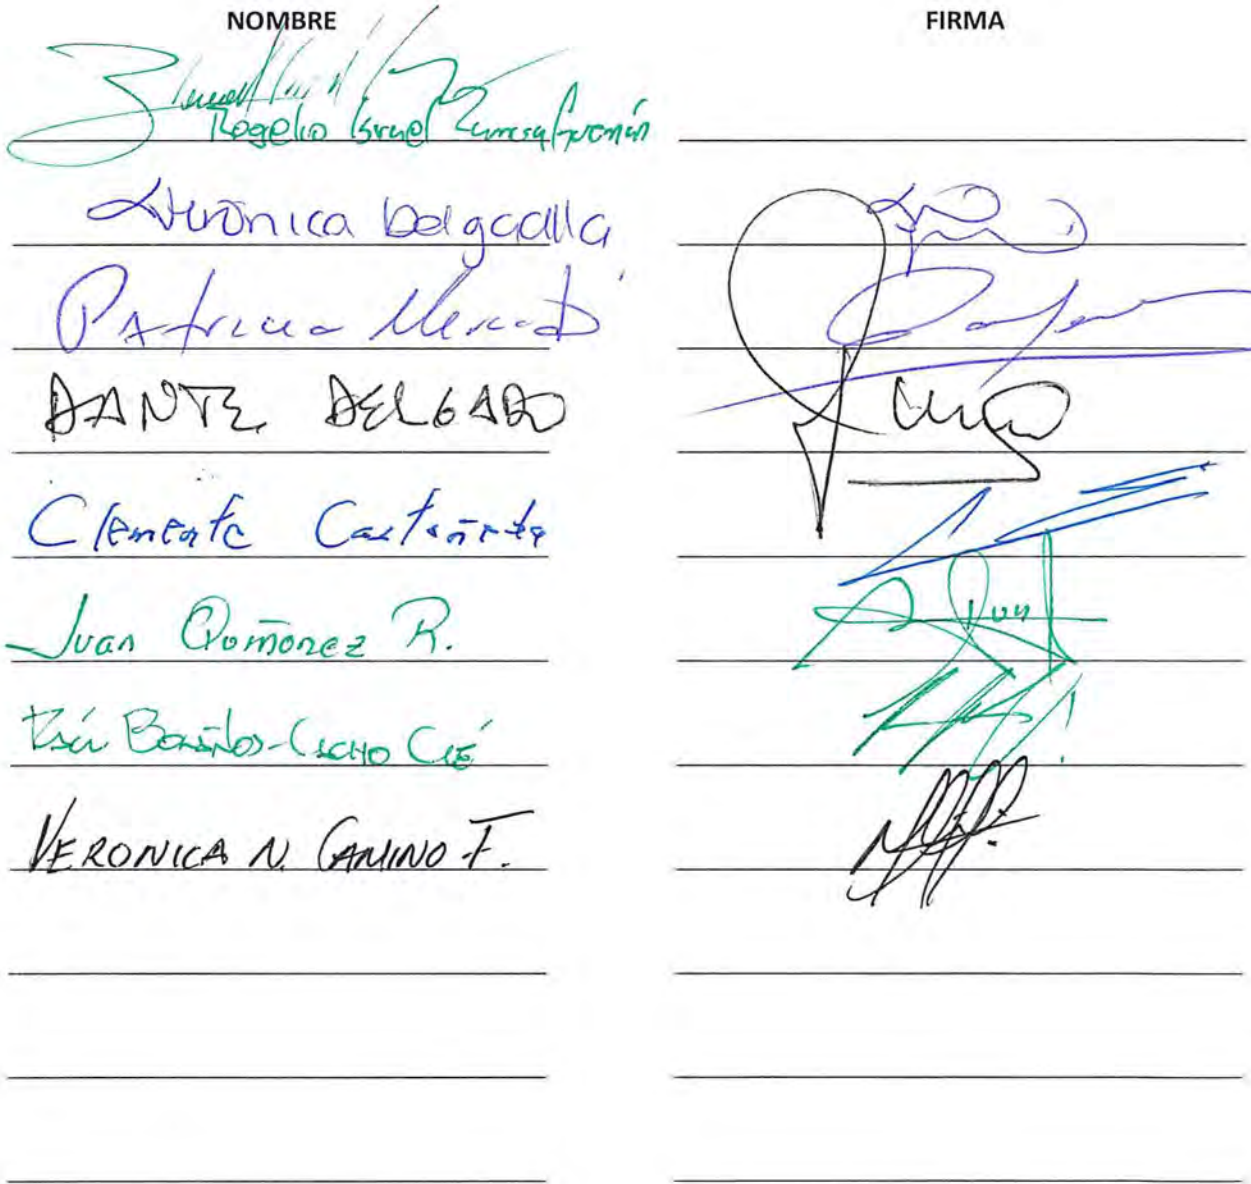 NOMBRE FIRMA
Rogelio Israel Zamora Guzmán
Verónica Delgadillo
Patricia Mercado
DANTE DELGADO
Clemente Castañeda
Juan Quiñonez R.
Bolaños-Cacho Cué
VERONICA N. CAMINO F.